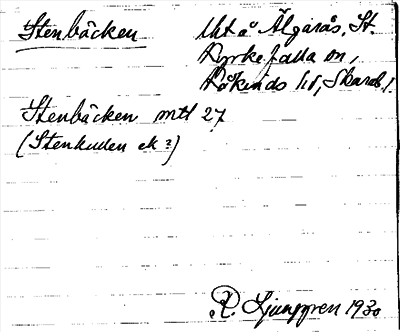 Stenbäcken Uht å Älgarås, St.
Kyrkefalla sn,
Kåkinds hd, Skarab. l.
Stenbäcken mtl 27
(Stenkuden ek?)
R. Ljunggren 1930